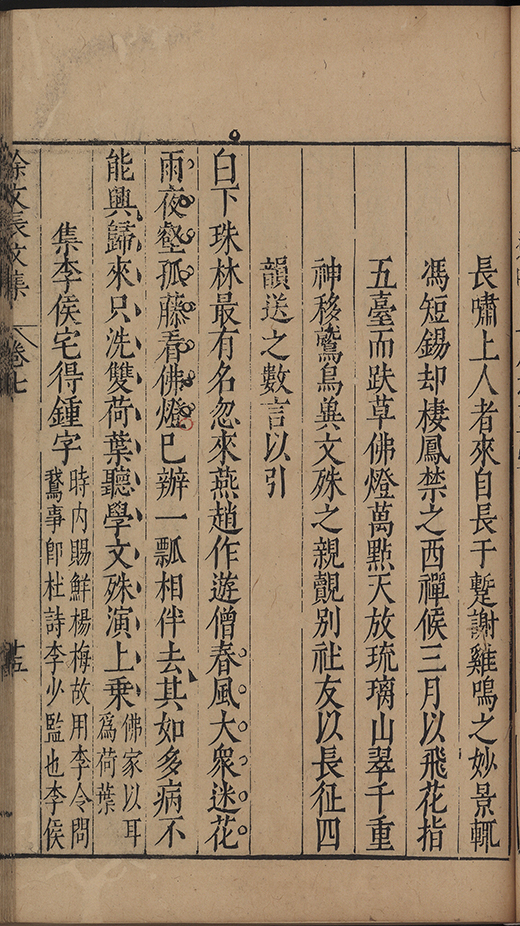 長嘯上人者來自長干蹔謝雞鳴之妙景輒
馮短錫却棲鳳禁之西禪候三月以飛花指
五臺而趺草佛燈萬點天放琉璃山翠千重
神移鷲鳥兾文殊之親覿別社友以長征四
韻送之數言以引
白下珠林最有名忽來燕趙作遊僧春風大衆迷花
雨夜壑孤藤看佛燈已辦一瓢相伴去其如多病不
能興歸來只洗雙荷葉聽學文殊演上乗佛家以耳
爲荷葉
集李侯宅得鍾字時内賜鮮楊梅故用李令問
鵞事卽杜詩李少監也李侯
徐文長文集
卷七
十五